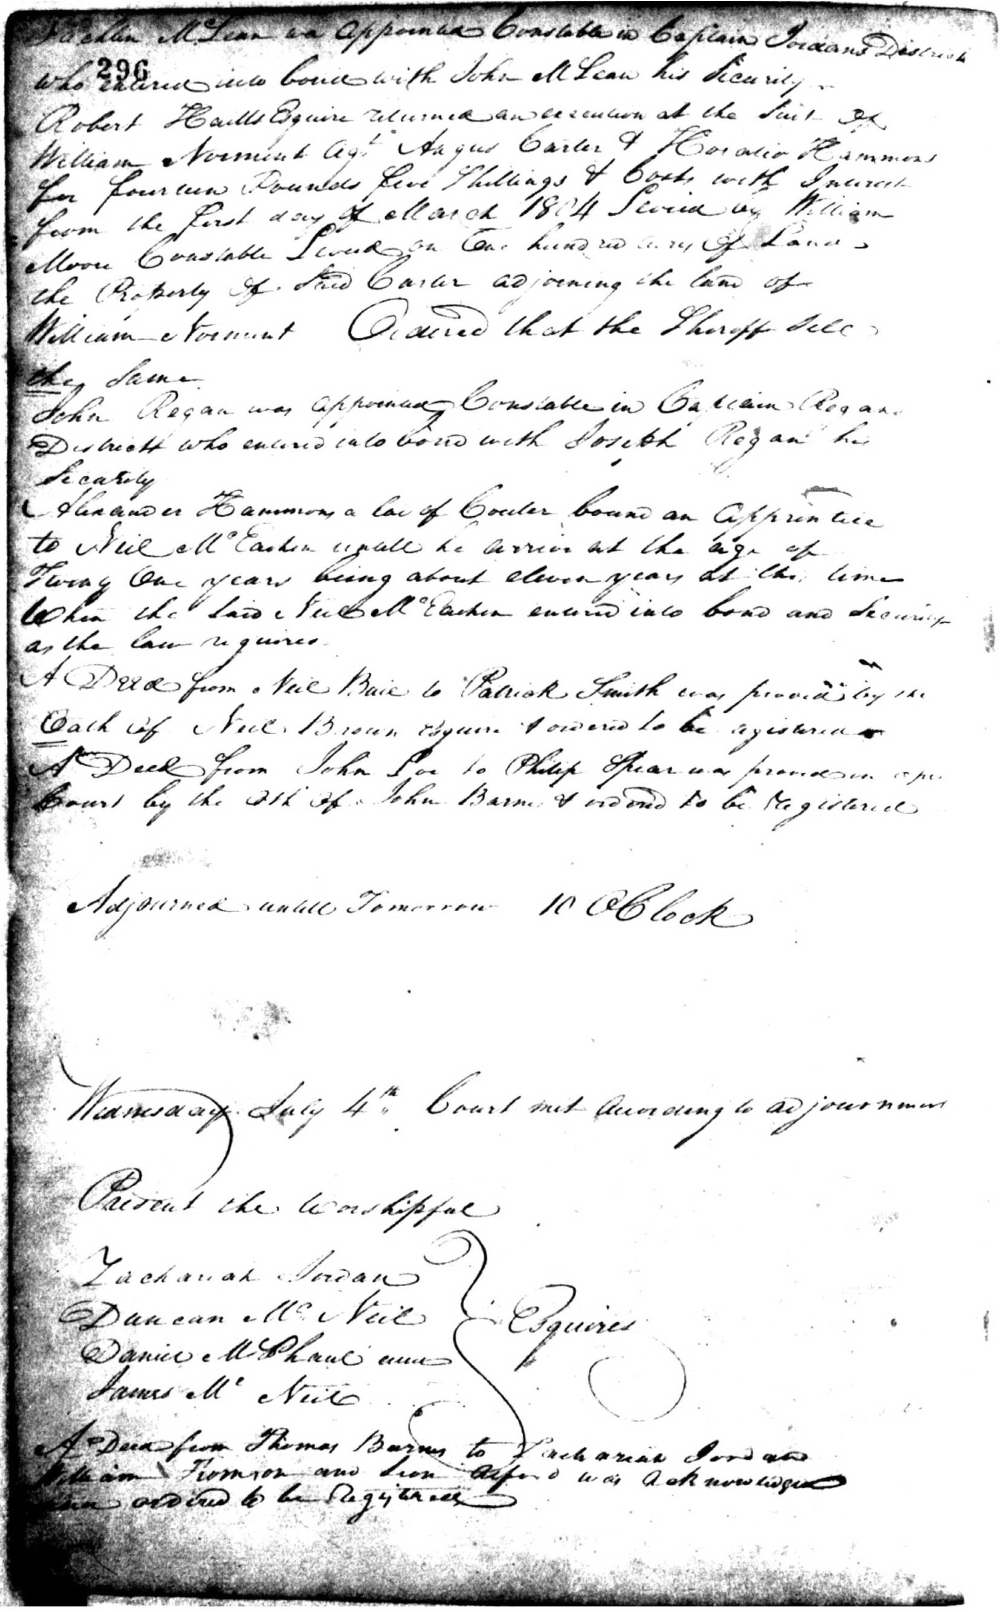 Lachlin McLean wa appointed Constable in Captain Jordans District
296
who entered into bond with John McLean his Security
Robert Esquire returned an execution at the Suit of
William Norment Agt Angus Carter & Horatio Hammons
for fourteen Pounds five Shillings & Costs with Interest
from the first day of March 1804 Levied by William
Moore Constable Levied on One hundred acres of Land
the Property of Said Carter adjoining the land of
William Norment Ordered that the Sheriff Sell
the Same
John Regan was appointed Constable in Captain Regans
District who entered into bond with Joseph Regan his
Security
Alexander Hammons a lad of Couler bound an Apprentice
to Neil McEachen untill he arrive at the age of
Twenty One years being about eleven years at this time
When the Said Neil McEachen entered into bond and Security
as the law requires
A Deed from Neil Buie to Patrick Smith was proved by the
Oath of Neil Brown Esquire & ordered to be registered
A Deed from John Loe to Philip Spear was proved in open
Court by the Oth of John Barnes & ordered to be Registered
Adjourned untill Tomorrow 10 OClock
Wednesday July 4th Court met According to adjournment
Present the Worshipful
Zachariah Jordan
Duncan Mc Neil Esquires
Daniel McPhaul
James Mc Neil
A Deed from Thomas Barnes to Zachariah Jordan
William and Alford was acknowledged
ordered to be Registered